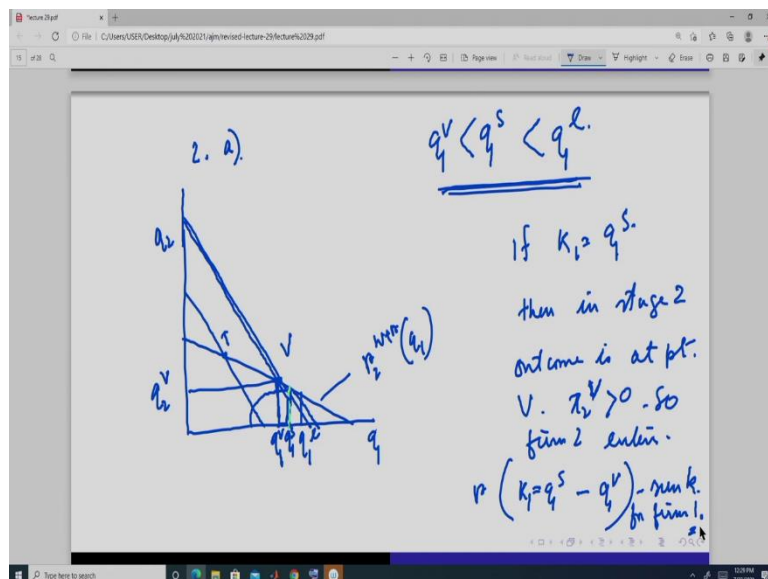 lecture 29.pdf
File | C:/Users/USER/Desktop/july%202021/ajm/revised-lecture-29/lecture%2029.pdf
15 of 28
Page view
Read aloud
Draw
Highlight
Erase
2. a).
q₁ᵛ < q₁ˢ < q₁ˡ.
If K₁ = q₁ˢ.
q₂
then in stage 2
T
V
outcome is at pt.
q₂ᵛ
V. π₂ᵛ > 0. So
firm 2 enters.
q₁ᵛ q₁ˢ q₁ˡ q₁
r (K₁ = q₁ˢ - q₁ᵛ) - sunk.
for firm 1.
Type here to search
12:29 PM